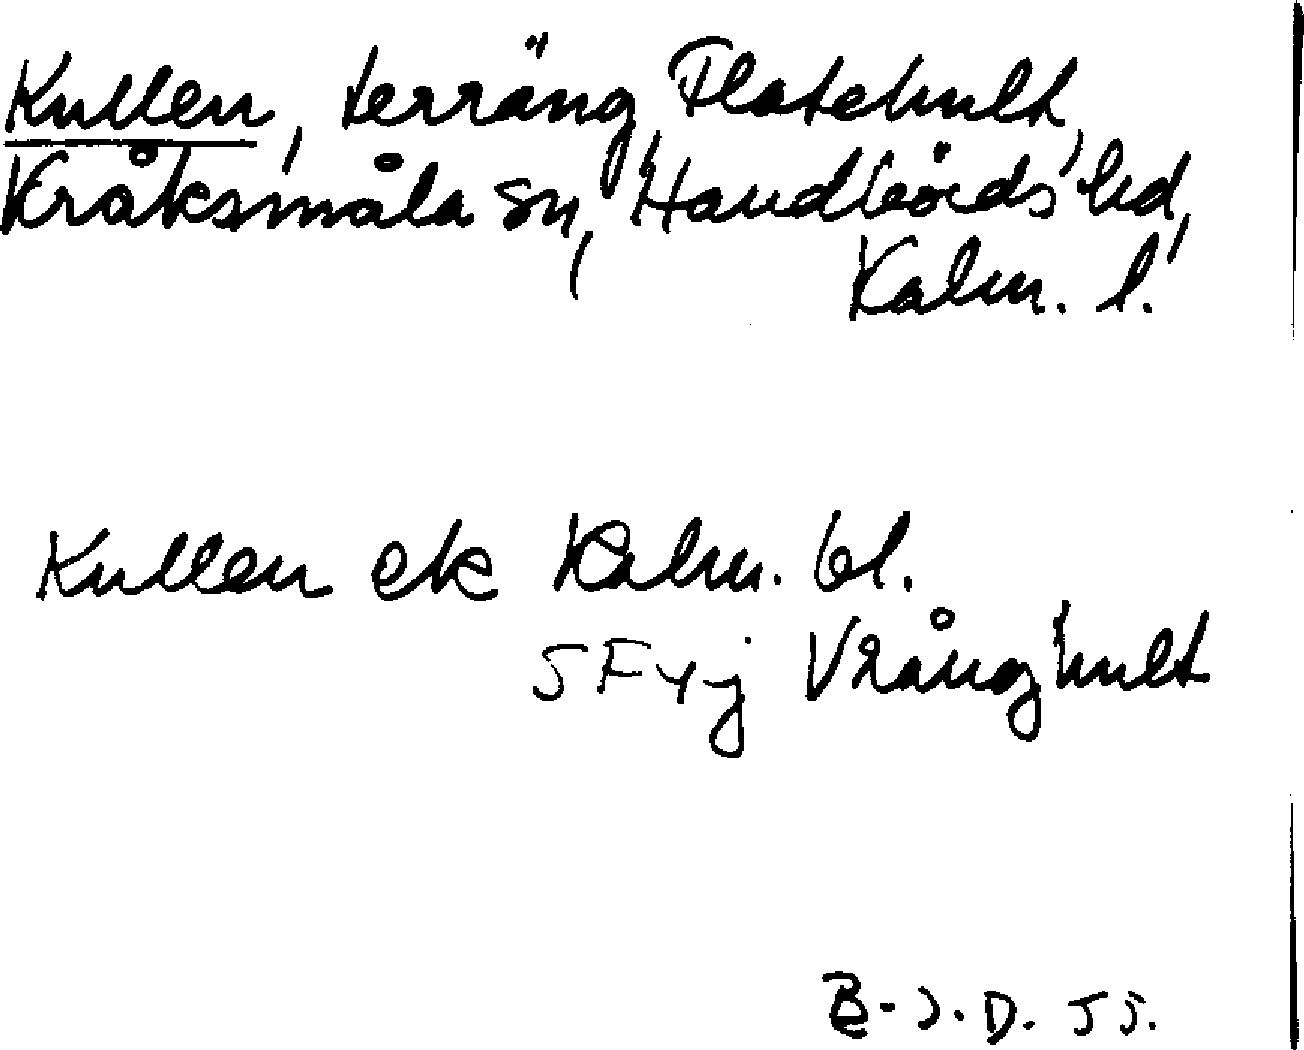 Kullen, terräng, Flatehult,
Kråksmåla sn, Handbörds hd,
Kalm. l.
Kullen ek Kalm. bl.
SF yj Vrånghult
B-J.D. 55.